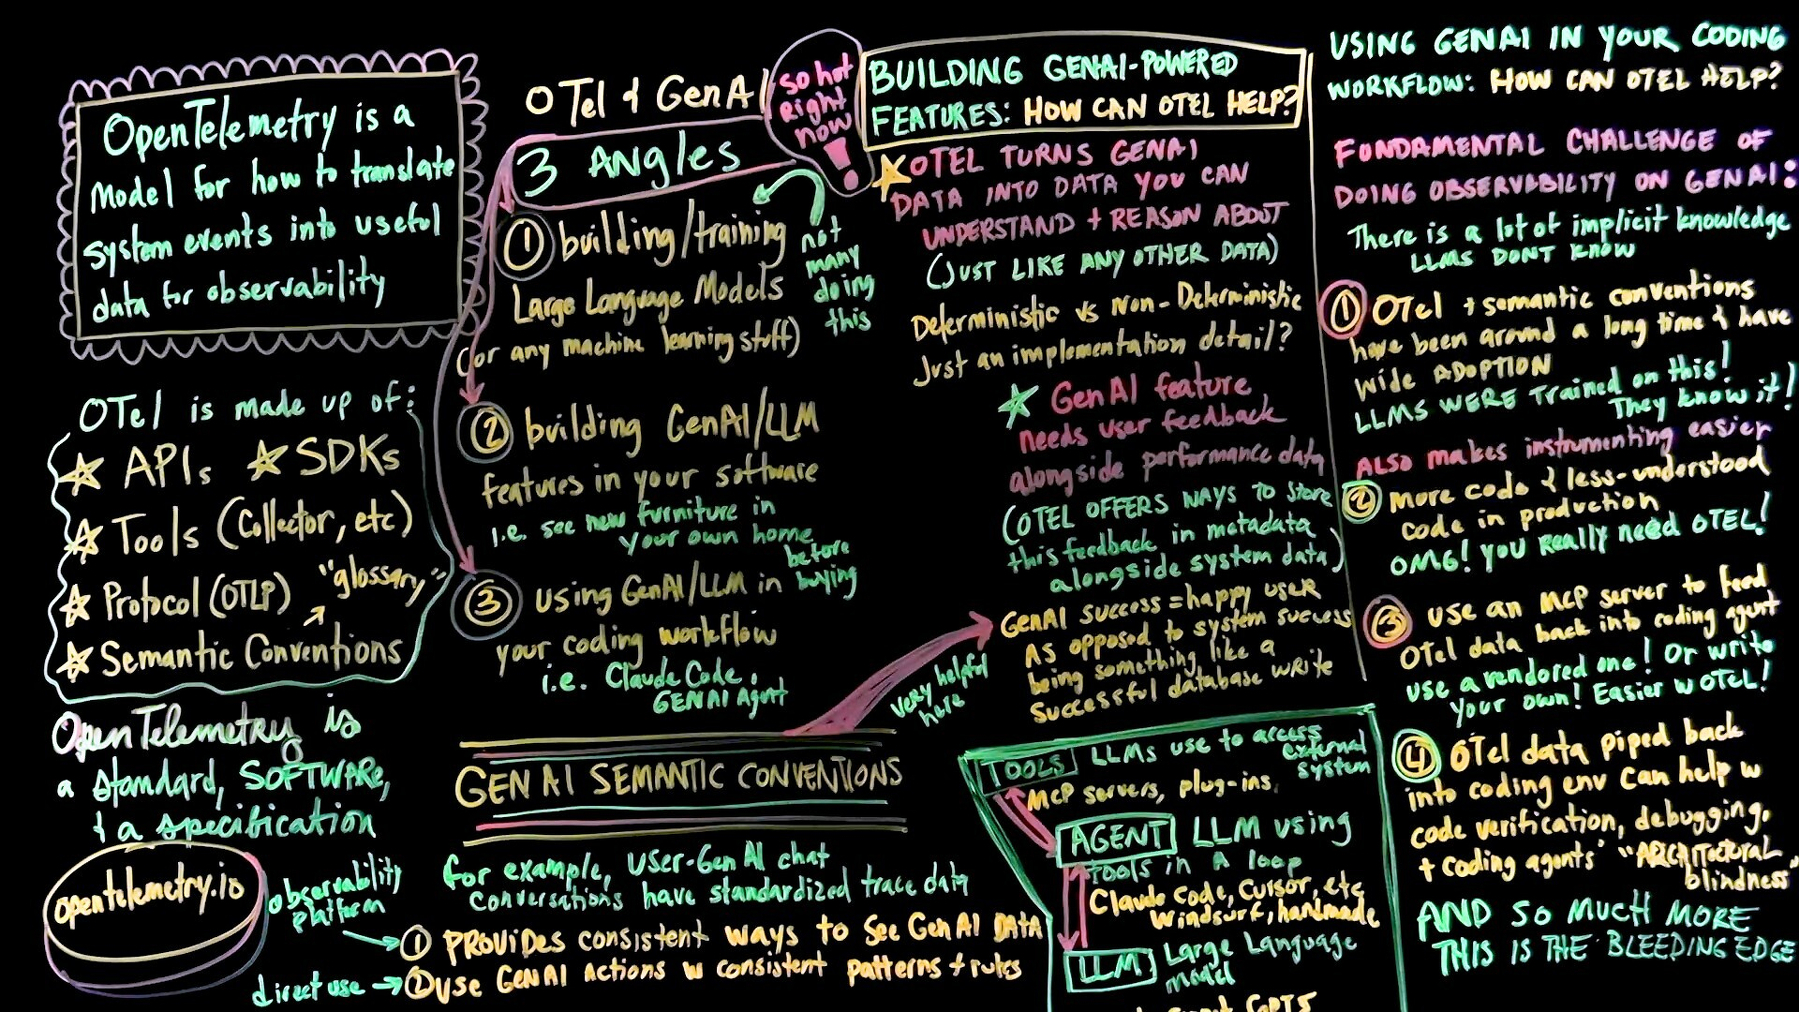 OpenTelemetry is a
Model for how to translate
system events into useful
data for observability
OTel is made up of:
APIs
SDKs
Tools (Collector, etc)
Protocol (OTLP)
"glossary"
Semantic Conventions
OpenTelemetry is
a standard, SOFTWARE,
+ a specification
opentelemetry.io
OTel & GenAI
so hot
right
now
!
3 Angles
1 building/training
Large Language Models
(or any machine learning stuff)
not
many
doing
this
2 building GenAI/LLM
features in your software
i.e. see new furniture in
your own home
before
buying
3 using GenAI/LLM in
your coding workflow
i.e. Claude Code,
GENAI Agent
GEN AI SEMANTIC CONVENTIONS
very helpful
here
for example, User-GenAI chat
conversations have standardized trace data
observability
platform
1 PROVIDES consistent ways to see GenAI DATA
direct use
2 use GENAI Actions w consistent patterns + rules
BUILDING GENAI-POWERED
FEATURES: HOW CAN OTEL HELP?
OTEL TURNS GENAI
DATA INTO DATA YOU CAN
UNDERSTAND + REASON ABOUT
(JUST LIKE ANY OTHER DATA)
Deterministic vs Non-Deterministic
Just an implementation detail?
GenAI feature
needs user feedback
alongside performance data
(OTEL OFFERS WAYS TO store
this feedback in metadata
alongside system data)
GenAI success = happy user
As opposed to system success
being something like a
successful database write
TOOLS LLMs use to access
external
system
MCP servers, plug-ins,
AGENT LLM using
tools in a loop
Claude code, Cursor, etc
Windsurf, handmade
LLM Large Language
Model
GPT5
USING GENAI IN YOUR CODING
WORKFLOW: HOW CAN OTEL HELP?
FUNDAMENTAL CHALLENGE OF
DOING OBSERVABILITY ON GENAI:
There is a lot of implicit knowledge
LLMS DONT KNOW
1 OTel + semantic conventions
have been around a long time & have
wide ADOPTION
LLMS WERE Trained on this!
They know it!
ALSO makes instrumenting easier
2 more code & less-understood
code in production
OMG! you really need OTEL!
3 use an MCP server to feed
OTel data back into coding agent
use a vendored one! Or write
your own! Easier w OTEL!
4 OTel data piped back
into coding env can help w
code verification, debugging,
+ coding agents' "ARCHITectural
blindness"
AND SO MUCH MORE
THIS IS THE BLEEDING EDGE